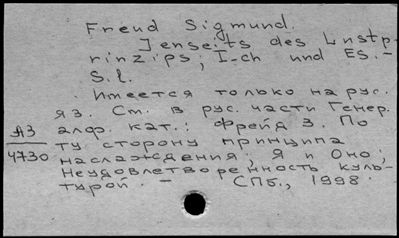 Freud Sigmund.
Jenseits des Lustp-
rinzips; I-ch und Es. -
S.l.
Имеется только на рус.
яз. См. в рус. части Генер.
алф. кат.: Фрейд З. По
ту сторону принципа
наслаждения; Я и Оно;
Неудовлетворенность куль-
турой. - СПб., 1998.
А3
4730